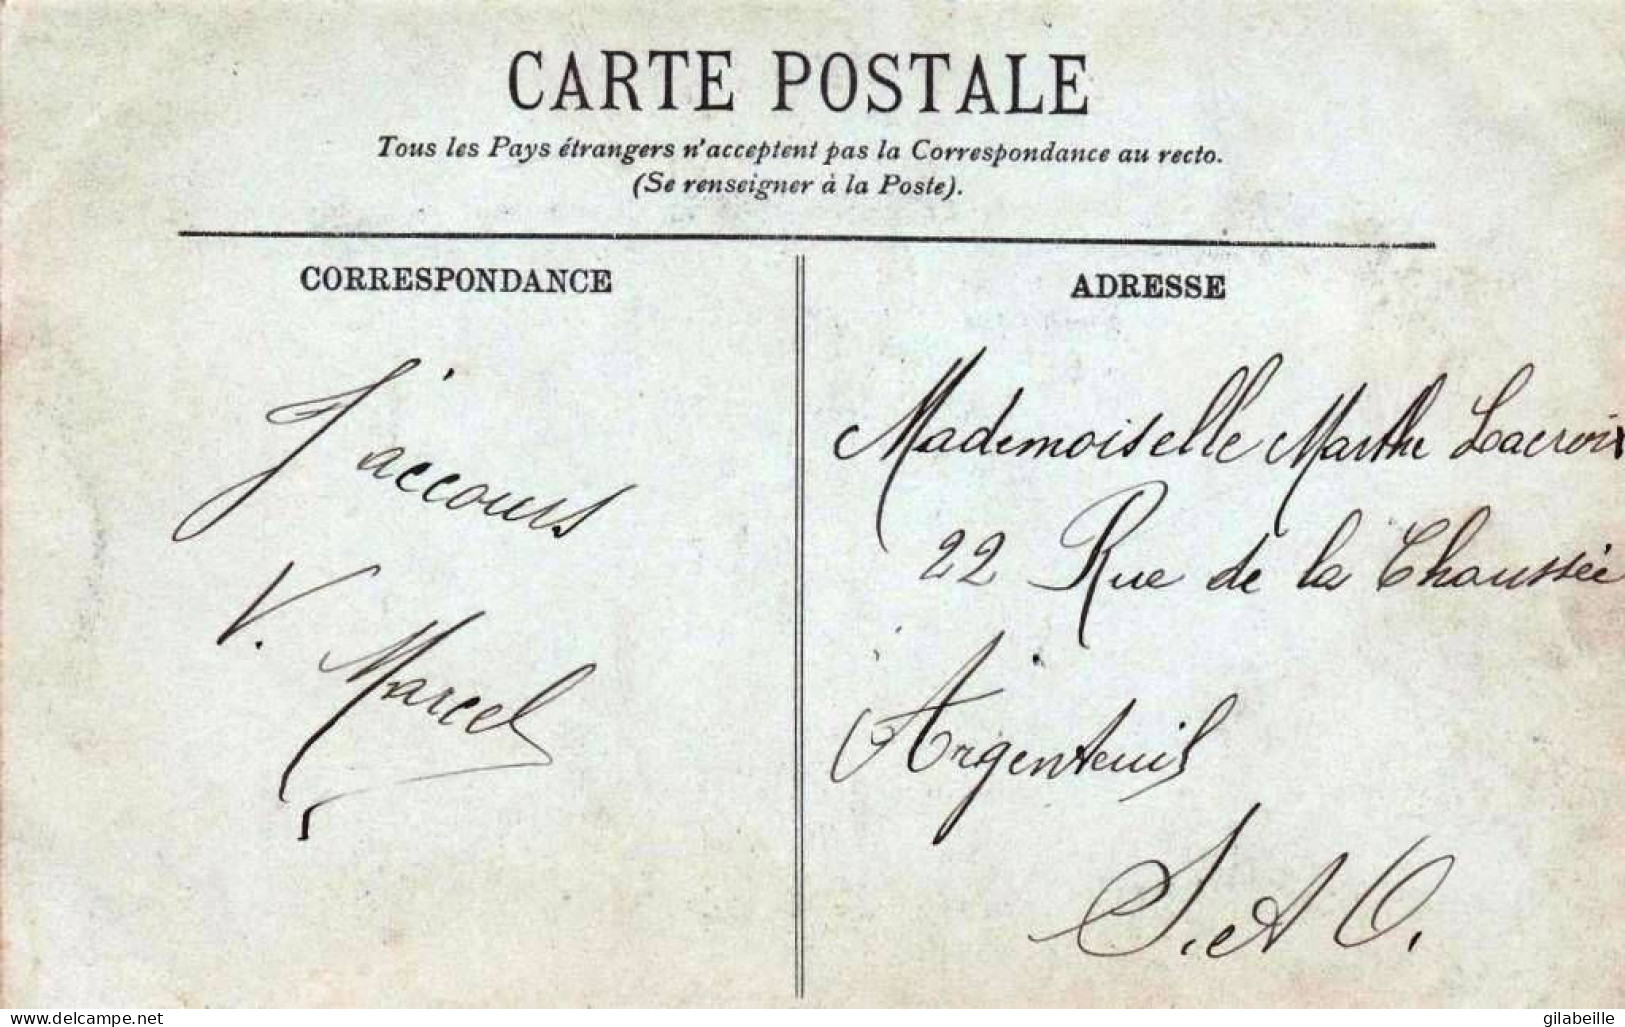 CARTE POSTALE
Tous les Pays étrangers n'acceptent pas la Correspondance au recto.
(Se renseigner à la Poste).
CORRESPONDANCE
J'accours
V. Marcel
ADRESSE
Mademoiselle Marthe Lacroix
22 Rue de la Chaussée
Argenteuil
S. et O.
www.delcampe.net
gilabeille